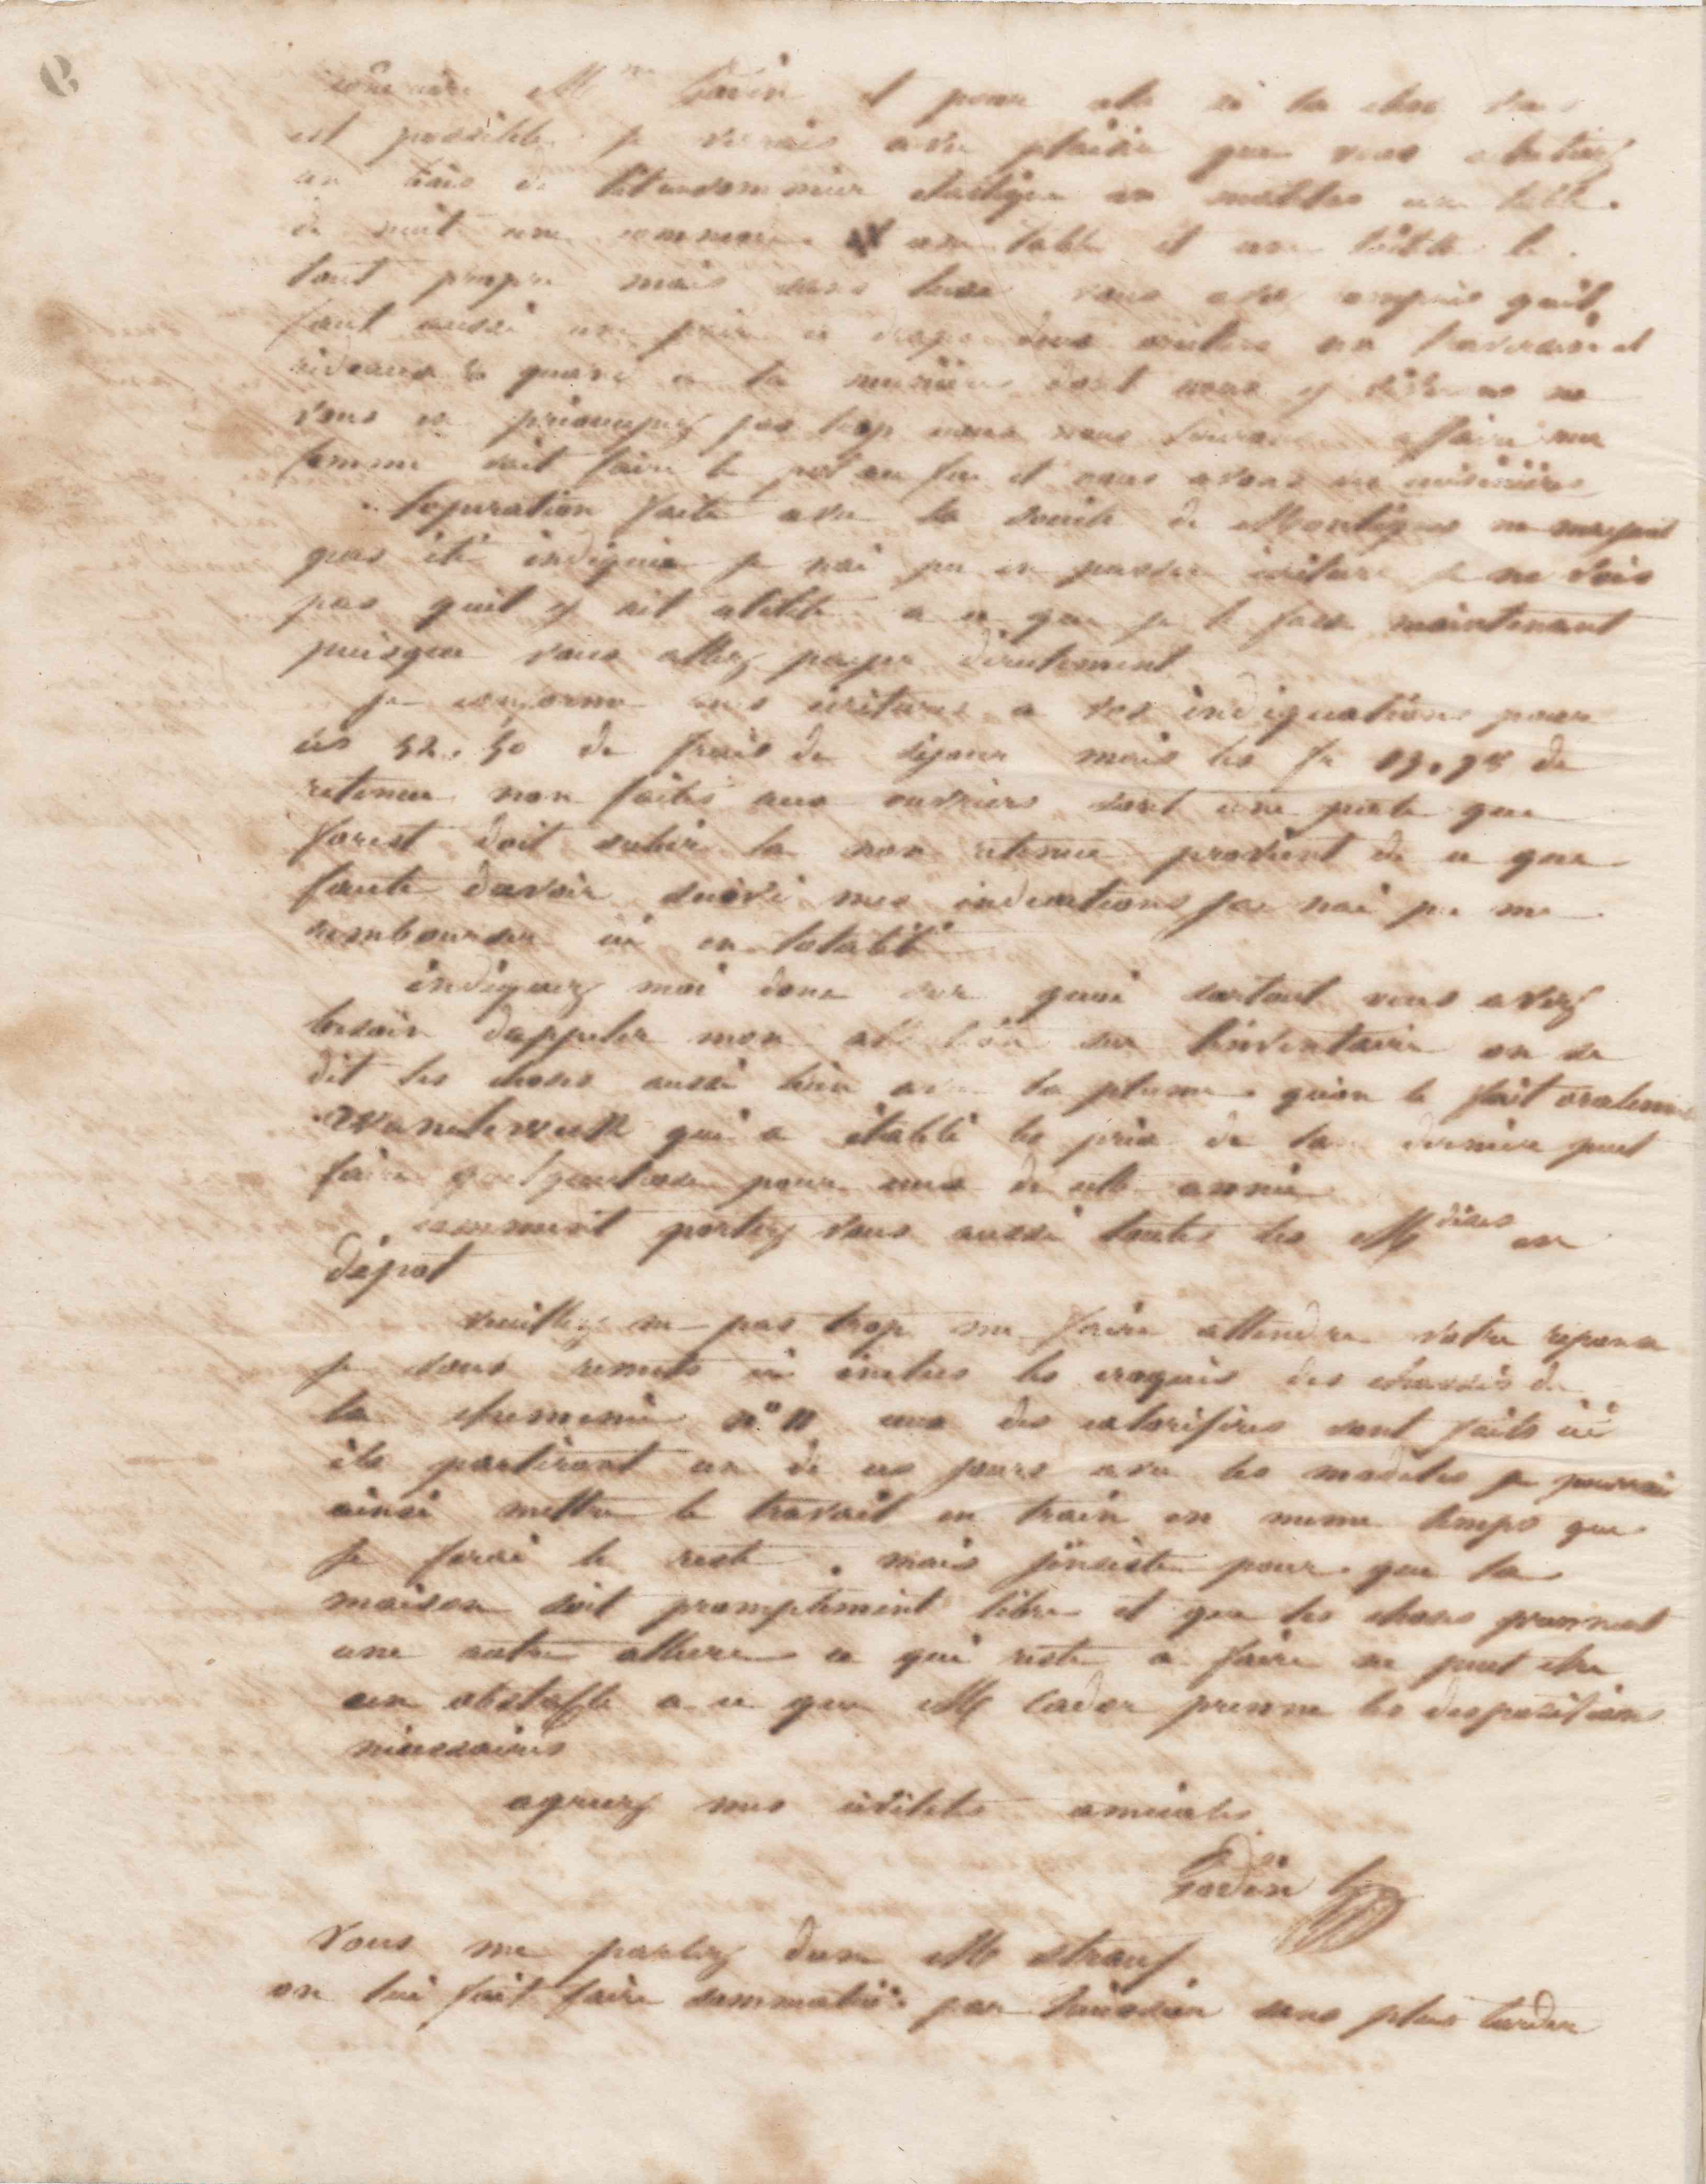 Mme Godin et pour cela si la chose vous
est possible je verrais avec plaisir que vous achetiez
un bois de lit un sommier élastique un matelas une table
de nuit une commode et une table et une toilette le
tout propre mais sans luxe vous avez compris qu'il
faut aussi une paire de draps deux oreillers un traversin et
rideaux & quand a la manière dont nous y vivrons ne
vous en préoccupez pas trop nous nous faire ma
femme sait faire le pot au feu et nous avons une cuisinière
lopération faite avec la société de Montigny ne mayant
pas été indiquée je nai pu en passer écriture je ne vois
pas quil y ait utilité a ce que je le fasse maintenant
puisque vous allez payer directement
je conforme mes écritures a vos indiquations pour
les 52.50 de frais de séjour mais les fr 17.75 de
retenue non faites aux ouvriers sont une perte que
forest doit subir la non retenue provient de ce que
faute davoir suivi mes indications je nai pu me
rembourser ici en totalité
indiquez moi donc sur quoi surtout vous avez
besoin dappeler mon attention sur linventaire on se
dit les choses aussi bien avec la plume quon le fait oralement
qui a établi les prix de lan dernier peut
faire quelquechose pour ceux de cette année
comment portez vous aussi toutes les Mdises en
dépot
veuillez ne pas trop me faire attendre votre reponse
je vous remets ci inclus les croquis des chassis de
la cheminée n° 11 ceux des calorifères sont faits ici
ils partiront un de ces jours avec les modèles je pourrai
ainsi mettre le travail en train en meme temps que
je ferai le reste. mais jinsiste pour que la
maison soit promptement libre et que les choses prennent
une autre allure ce qui reste a faire ne peut etre
un obstacle a ce que M Cador prenne les dispositions
nécessaires
agreez mes civilités amicales
Godin
Vous me parlez dun M Strauf
on lui fait faire sommation par huissier sans plus tarder